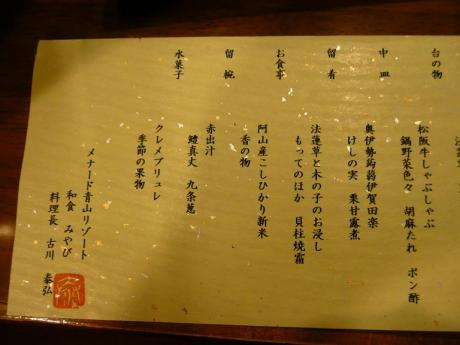 台の物
松阪牛しゃぶしゃぶ
鍋野菜色々 胡麻たれ ポン酢
中皿
奥伊勢蒟蒻伊賀田楽
けしの実 栗甘露煮
留肴
法蓮草と木の子のお浸し
もってのほか 貝柱焼霜
お食事
阿山産こしひかり新米
香の物
留椀
赤出汁
鱧真丈 九条葱
水菓子
クレメブリュレ
季節の果物
メナード青山リゾート
和食 みやび
料理長 古川 泰弘